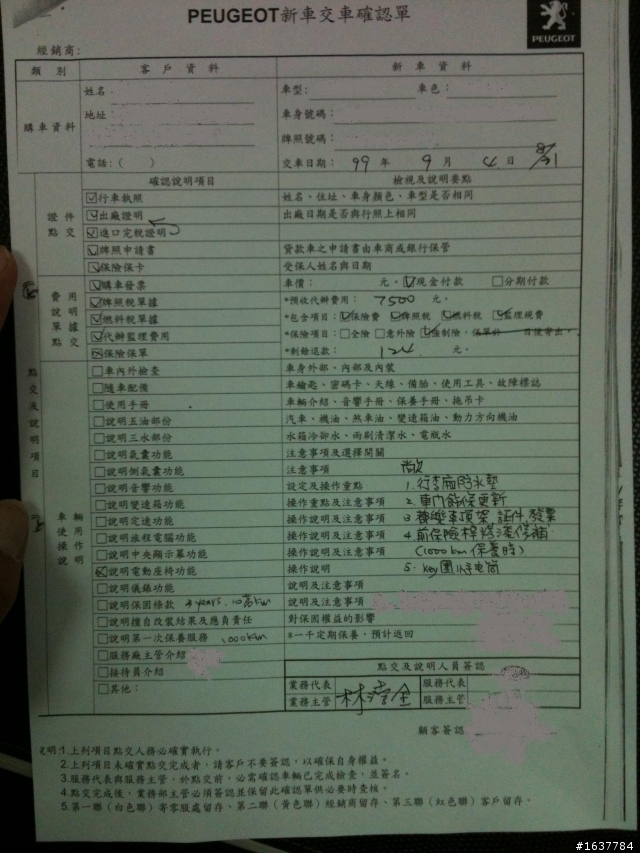 PEUGEOT新車交車確認單
PEUGEOT
經銷商:
類別 客戶資料 新車資料
購車資料 姓名 車型: 車色:
地址 車身號碼:
牌照號碼:
電話:( ) 交車日期: 99 年 9 月 4 日 8/31
確認說明項目 檢視及說明要點
證件點交 行車執照 姓名、住址、車身顏色、車型是否相同
出廠證明 出廠日期是否與行照上相同
進口完稅證明
牌照申請書 貸款車之申請書由車商或銀行保管
保險保卡 受保人姓名與日期
費用說明單據點交 購車發票 車價: 元。現金付款 分期付款
牌照稅單據 *預收代辦費用: 7500 元。
燃料稅單據 *包含項目:保險費 牌照稅 燃料稅 監理規費
代辦監理費用 *保險項目:全險 意外險 強制險。保單於 日後寄出。
保險保單 *剩餘退款: 124 元。
點交及說明項目
車內外檢查 車身外部、內部及內裝
隨車配備 車鑰匙、密碼卡、天線、備胎、使用工具、故障標誌
使用手冊 車輛介紹、音響手冊、保養手冊、拖吊卡
說明五油部份 汽車、機油、煞車油、變速箱油、動力方向機油
說明三水部份 水箱冷卻水、雨刷清潔水、電瓶水
說明氣囊功能 注意事項及選擇開關
說明側氣囊功能 注意事項 尚欠
車輛使用操作說明 說明音響功能 設定及操作重點 1.行李廂防水墊
說明變速箱功能 操作重點及注意事項 2.車門飾條更新
說明定速功能 操作重點及注意事項 3 車頂架 証件 發票
說明旅程電腦功能 操作重點及注意事項 4 前保險桿
說明中央顯示幕功能 操作及注意事項 (1000km保養時)
說明電動座椅功能 操作說明 5. key圈
說明儀錶功能 說明及注意事項
說明保固條款 3 years. 10萬km 說明及注意事項
說明擅自改裝結果及應負責任 對保固權益的影響
說明第一次保養服務 1000km *一千定期保養,預計返回
服務廠主管介紹
接待員介紹 點交及說明人員簽認
其他: 業務代表 服務代表
業務主管 服務主管
顧客簽認
說明:1.上列項目點交人務必確實執行。
2.上列項目未確實點交完成者,請客戶不要簽認,以確保自身權益。
3.服務代表與服務主管。於點交前,必需確認車輛已完成檢查,並簽名。
4.點交完成後,業務部主管必須簽認並保留此確認單供必要時查核。
5.第一聯(白色聯)寄零服處留存、第二聯(黃色聯)經銷商留存、第三聯(紅色聯)客戶留存。
#1637784